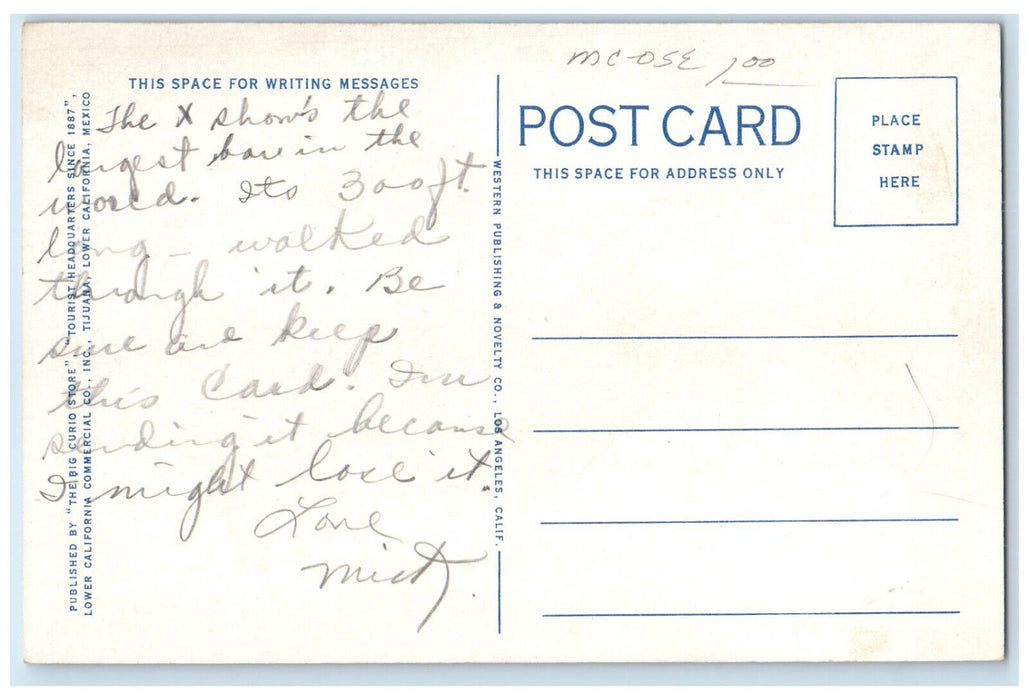 MC-OSE 1.00
THIS SPACE FOR WRITING MESSAGES
The X show's the
largest bar in the
world. Its 300 ft.
long - walked
through it. Be
sure and keep
this Card. Im
sending it because
I might lose it.
Love
PUBLISHED BY "THE BIG CURIO STORE" "TOURIST HEADQUARTERS SINCE 1887",
LOWER CALIFORNIA COMMERCIAL CO., INC., TIJUANA, LOWER CALIFORNIA, MEXICO
WESTERN PUBLISHING & NOVELTY CO., LOS ANGELES, CALIF.
POST CARD
THIS SPACE FOR ADDRESS ONLY
PLACE
STAMP
HERE